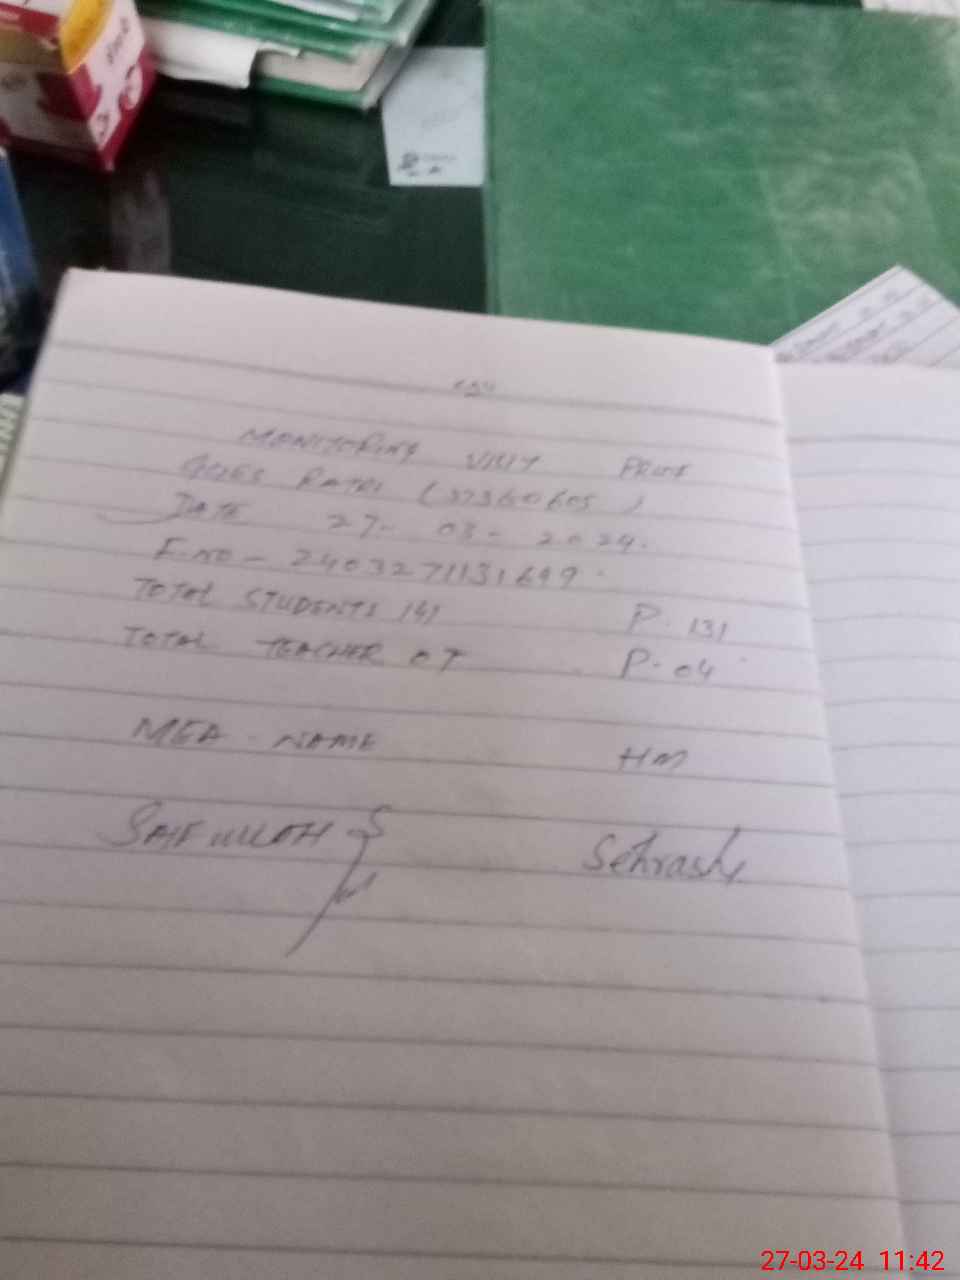 MONITORING VISIT PROOF
(37360605)
DATE 27-03-2024.
F.NO-2403271131649.
TOTAL STUDENTS 141 P.131
TOTAL TEACHER 07 P-04
MEA NAME HM
SAIFULLAH Sehrash
27-03-24 11:42